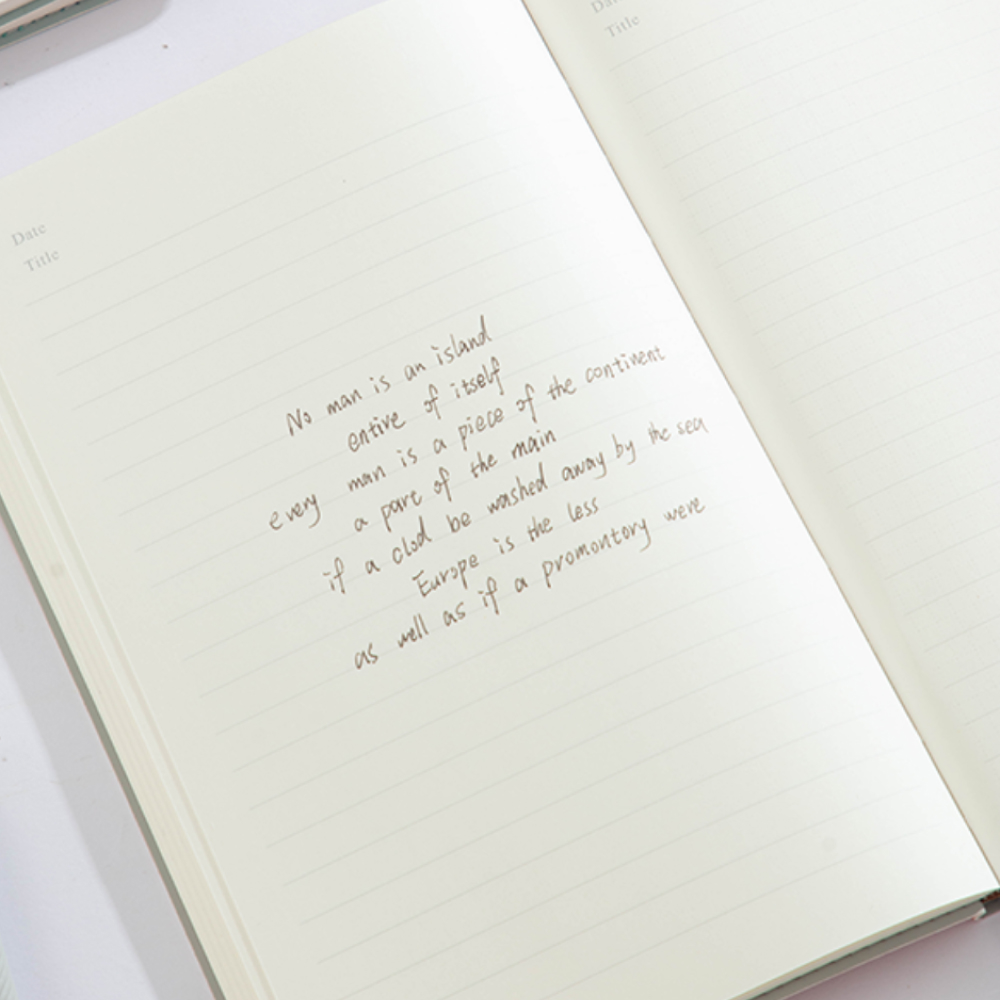 Date
Title
No man is an island
entire of itself
every man is a piece of the continent
a part of the main
if a clod be washed away by the sea
Europe is the less
as well as if a promontory were
Title